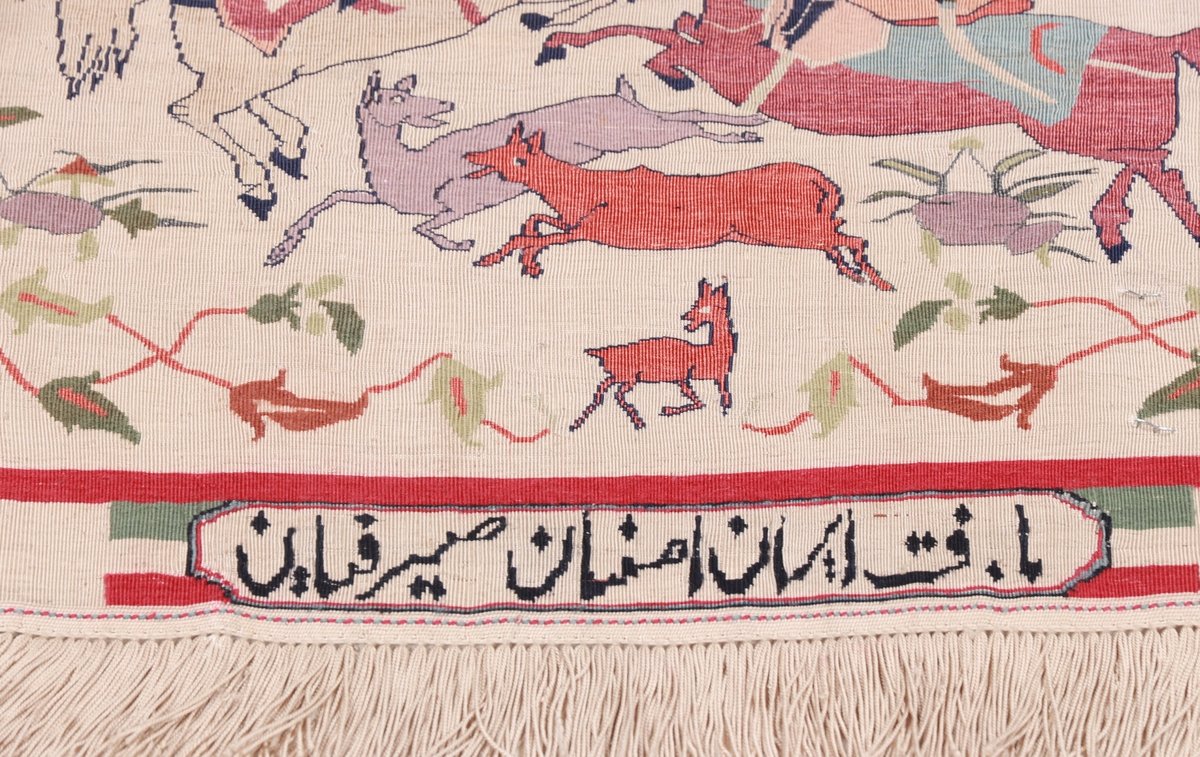 بافت ایران اصفهان صیرفیان